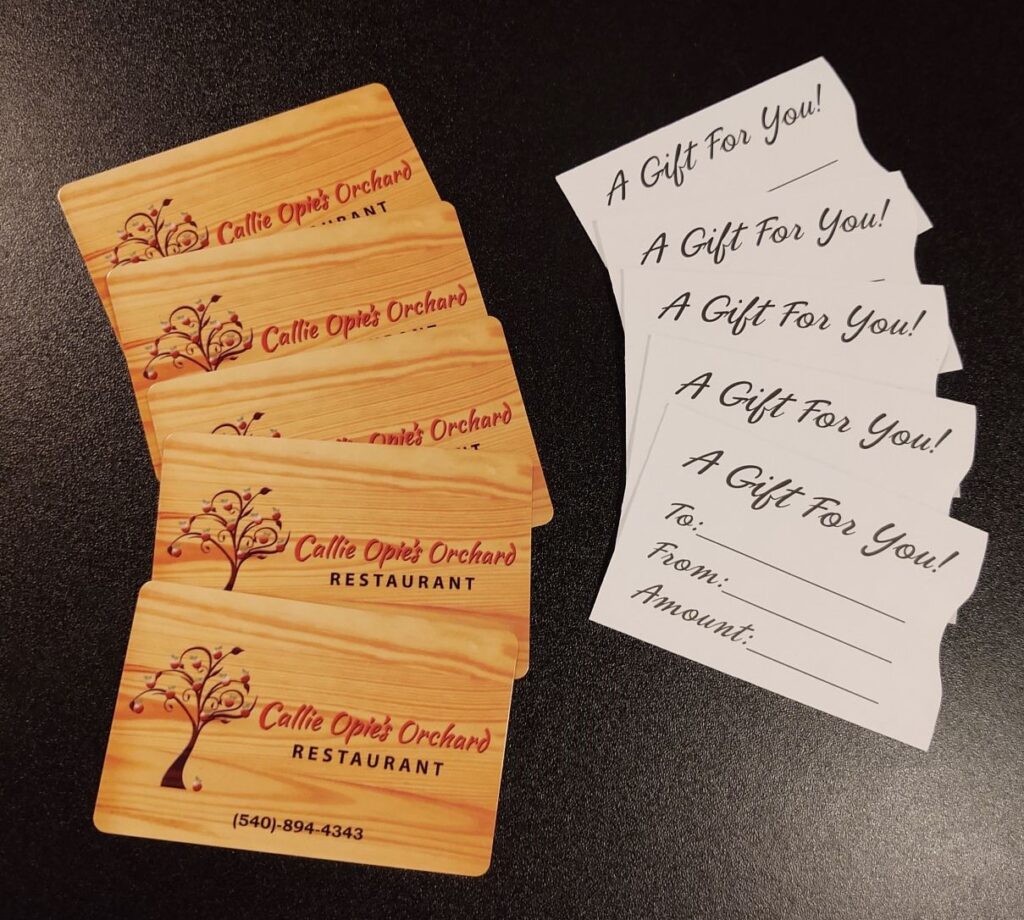 Callie Opie's Orchard
Callie Opie's Orchard
Opie's Orchard
Callie Opie's Orchard
RESTAURANT
Callie Opie's Orchard
RESTAURANT
(540)-894-4343
A Gift For You!
A Gift For You!
A Gift For You!
A Gift For You!
A Gift For You!
To:
From:
Amount: